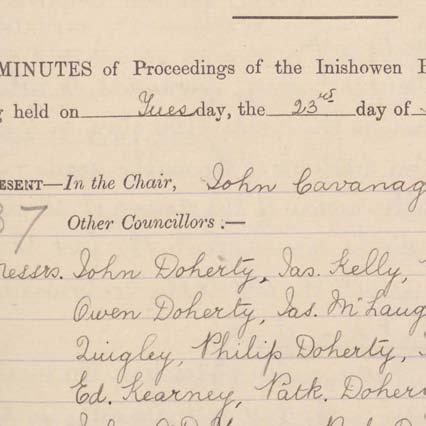 MINUTES of Proceedings of the Inishowen
held on Tuesday, the 23rd day of
ESENT—In the Chair, John Cavanag
37 Other Councillors :—
Messrs. John Doherty, Jas. Kelly,
Owen Doherty, Jas. McLaug
Quigley, Philip Doherty,
Ed. Kearney, Patk. Doher